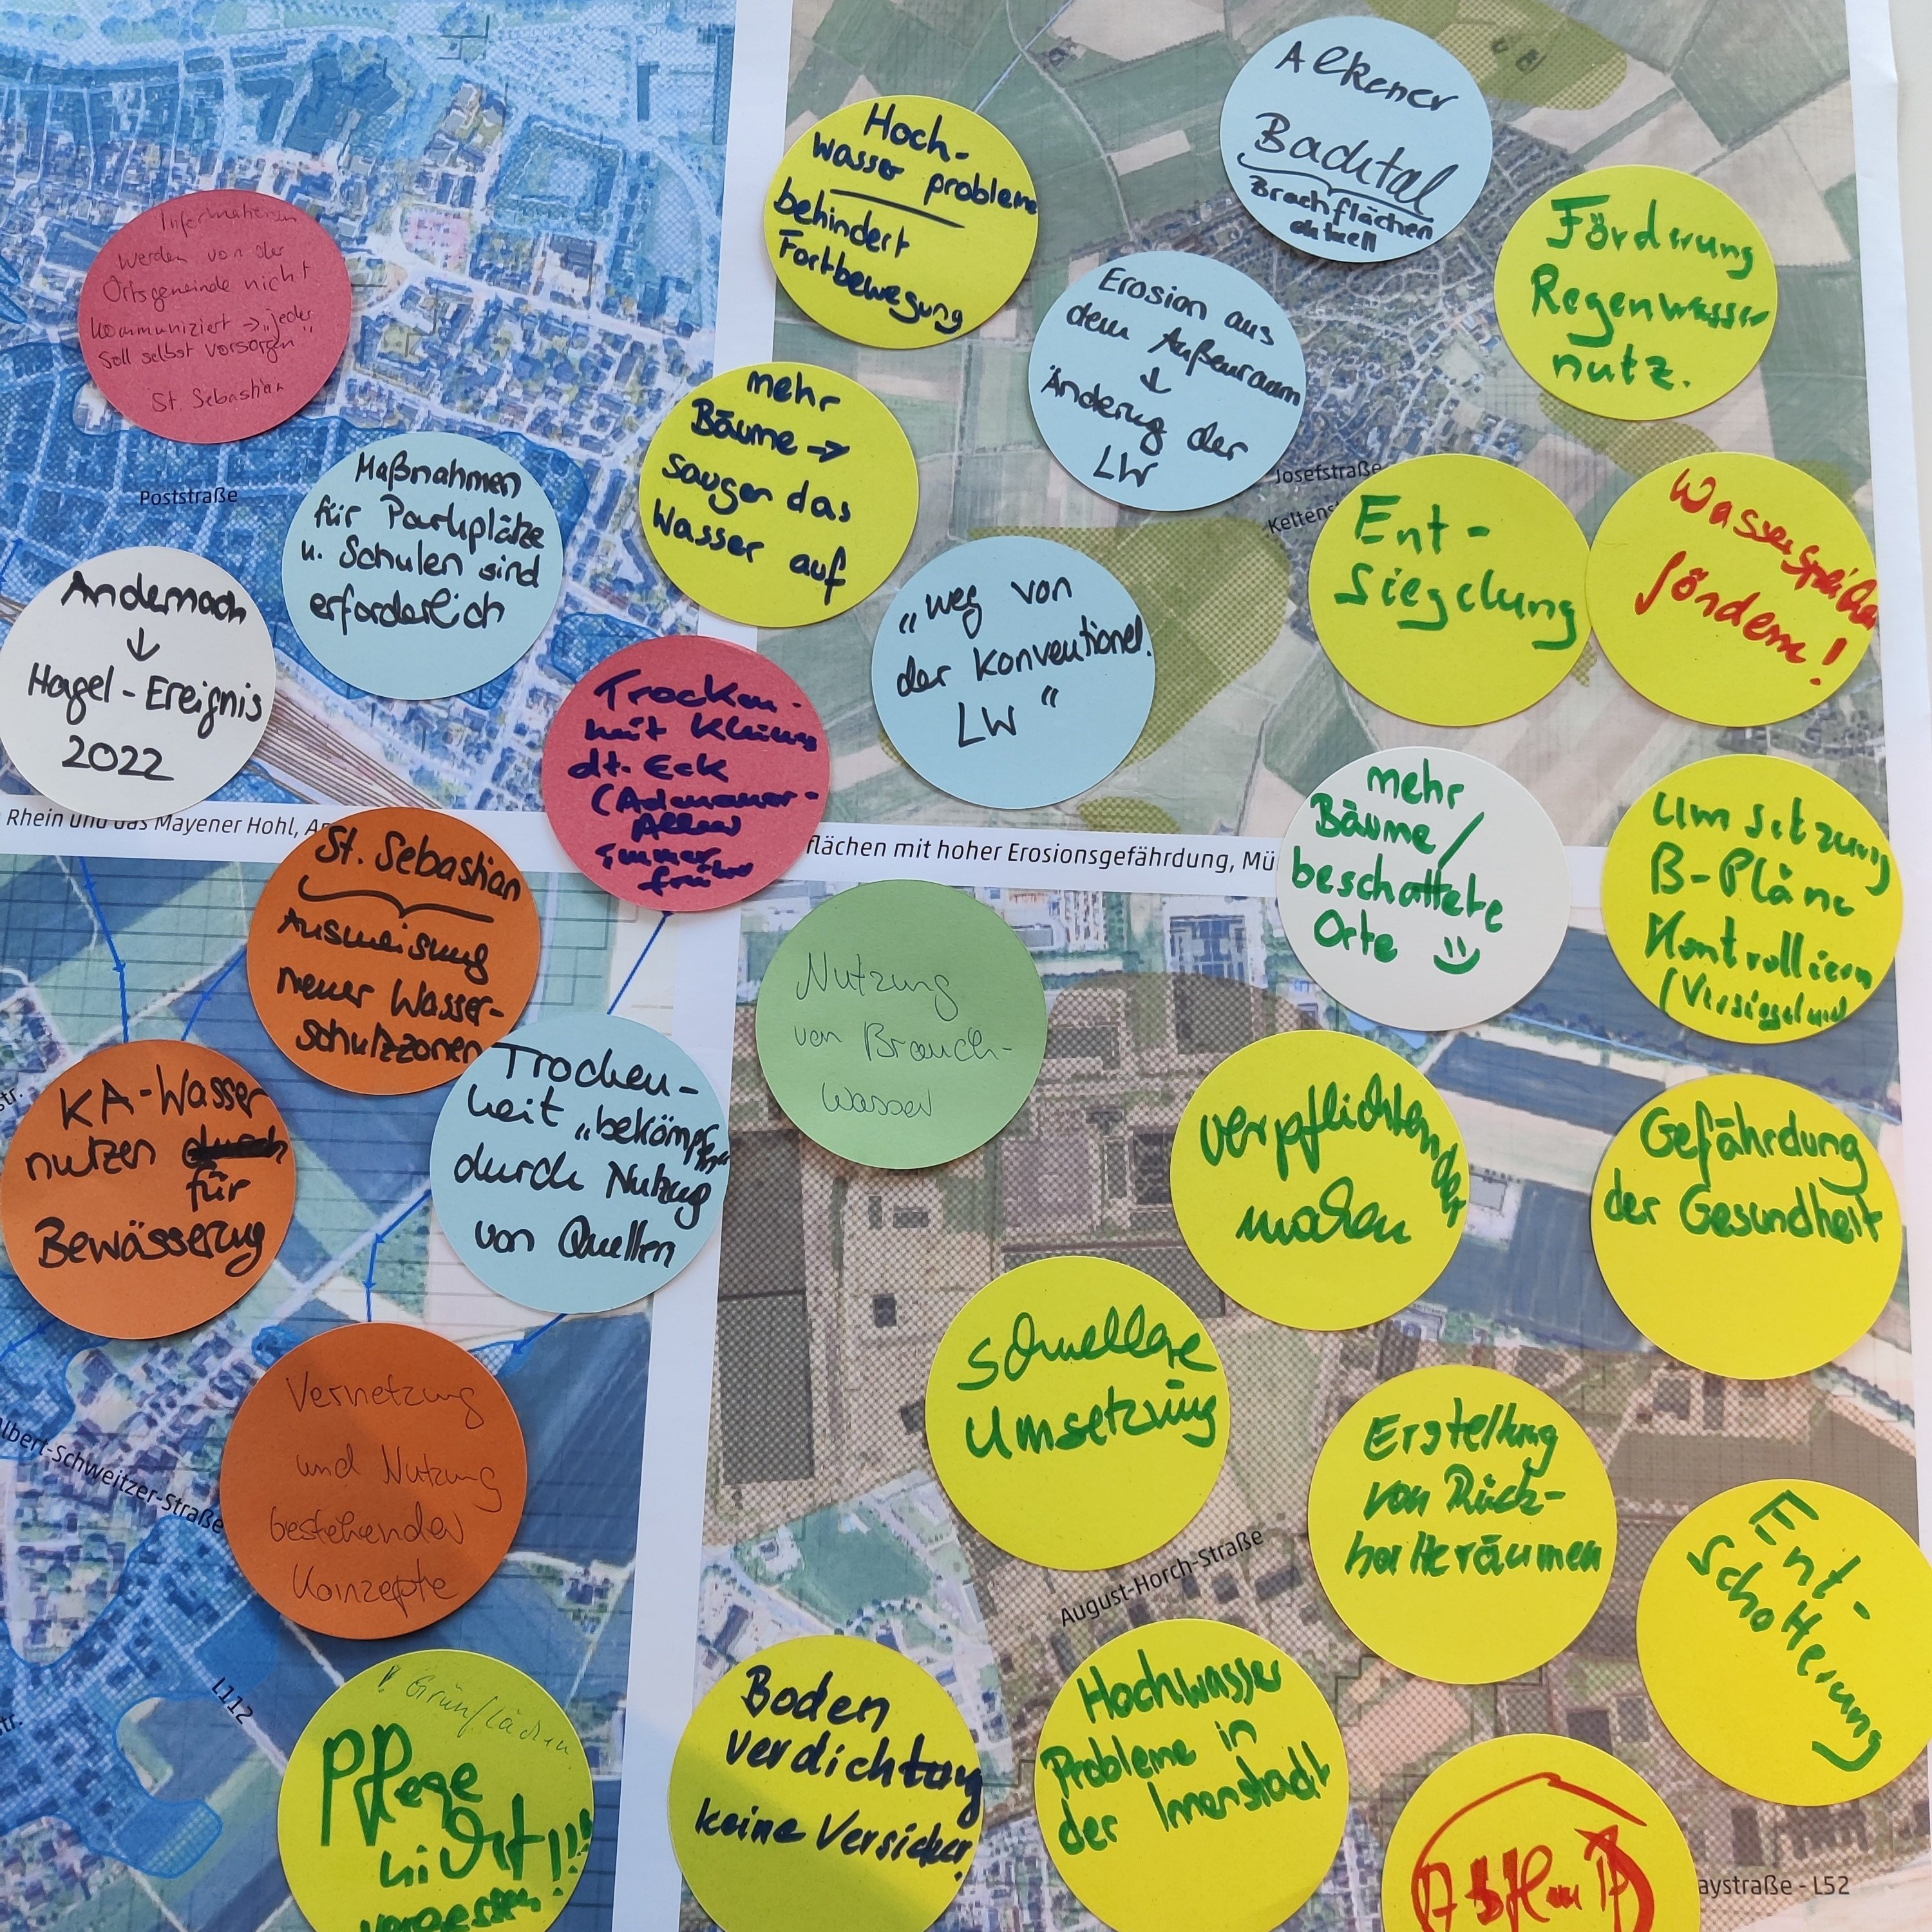 Informationen
werden von der
Ortsgemeinde nicht
kommuniziert → "jeder
soll selbst vorsorgen"
St. Sebastian
Hoch-
wasserprobleme
behindert
Fortbewegung
Alkener
Bachtal
Brachflächen
aktuell
Förderung
Regenwasser
nutz.
Erosion aus
dem Außenraum
↓
Änderug der
LW
mehr
Bäume →
saugen das
Wasser auf
Poststraße
Maßnahmen
für Parkplätze
u. Schulen sind
erforderlich
Josefstraße
Ent-
Siegelung
Wasserspeicher
fördern!
Andernach
↓
Hagel-Ereignis
2022
"weg von
der konventionel.
LW"
Trocken-
heit Kleines
dt. Eck
(Adenauer-
Allee)
immer
früher
mehr
Bäume/
beschattete
Orte
Umsetzung
B-Pläne
Kontrollieren
Rhein und das Mayener Hohl,
flächen mit hoher Erosionsgefährdung, Mü
St. Sebastian
Ausweisung
neuer Wasser-
schutzzonen
Nutzung
von Brauch-
wasser
KA-Wasser
nutzen
für
Bewässerug
Trocken-
heit "bekämpfen"
durch Nutzug
von Quellen
verpflichtender
machen
Gefährdung
der Gesundheit
schnellere
Umsetzung
Vernetzung
und Nutzung
bestehender
Konzepte
Albert-Schweitzer-Straße
Erstellung
von Rück-
halteräumen
Ent-
schotterung
August-Horch-Straße
L112
Grünflächen
Pflege
nicht!!!
vergessen
Boden
verdichtung
keine Versicker.
Hochwasser
Probleme in
der Innenstadt
aystraße - L52